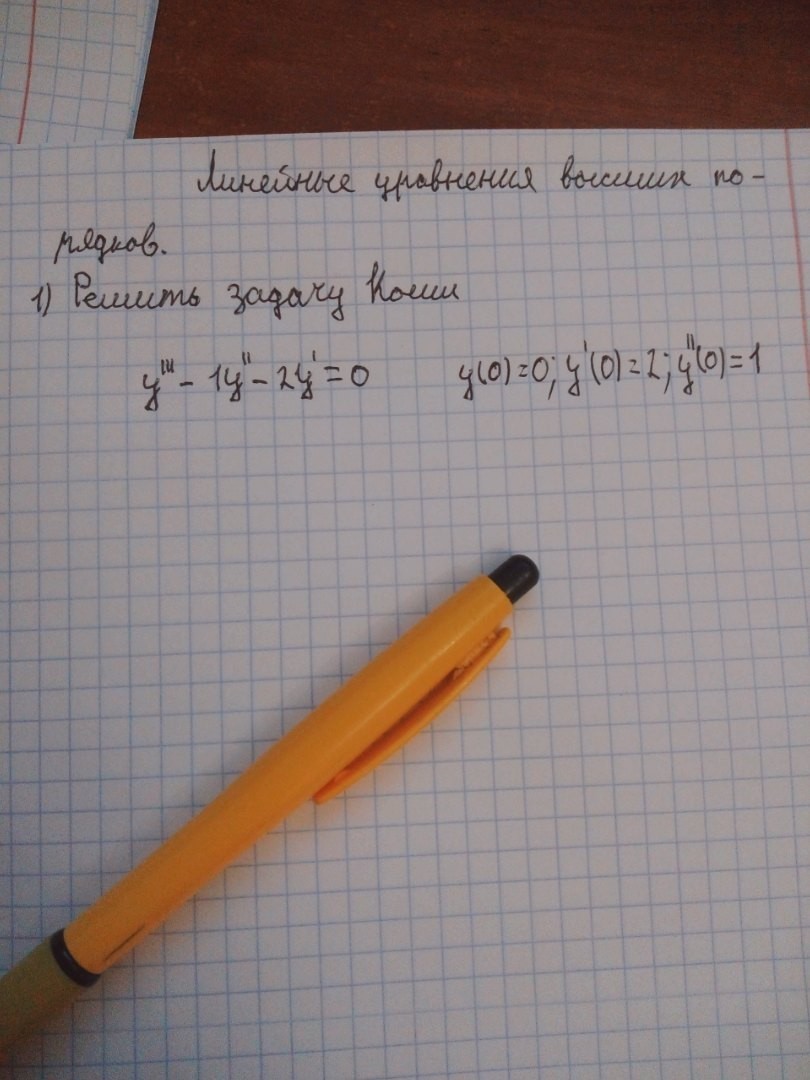 Линейные уравнения высших по-
рядков.
1) Решить задачу Коши
y''' - 1y'' - 2y' = 0 y(0)=0; y'(0)=2; y''(0)=1